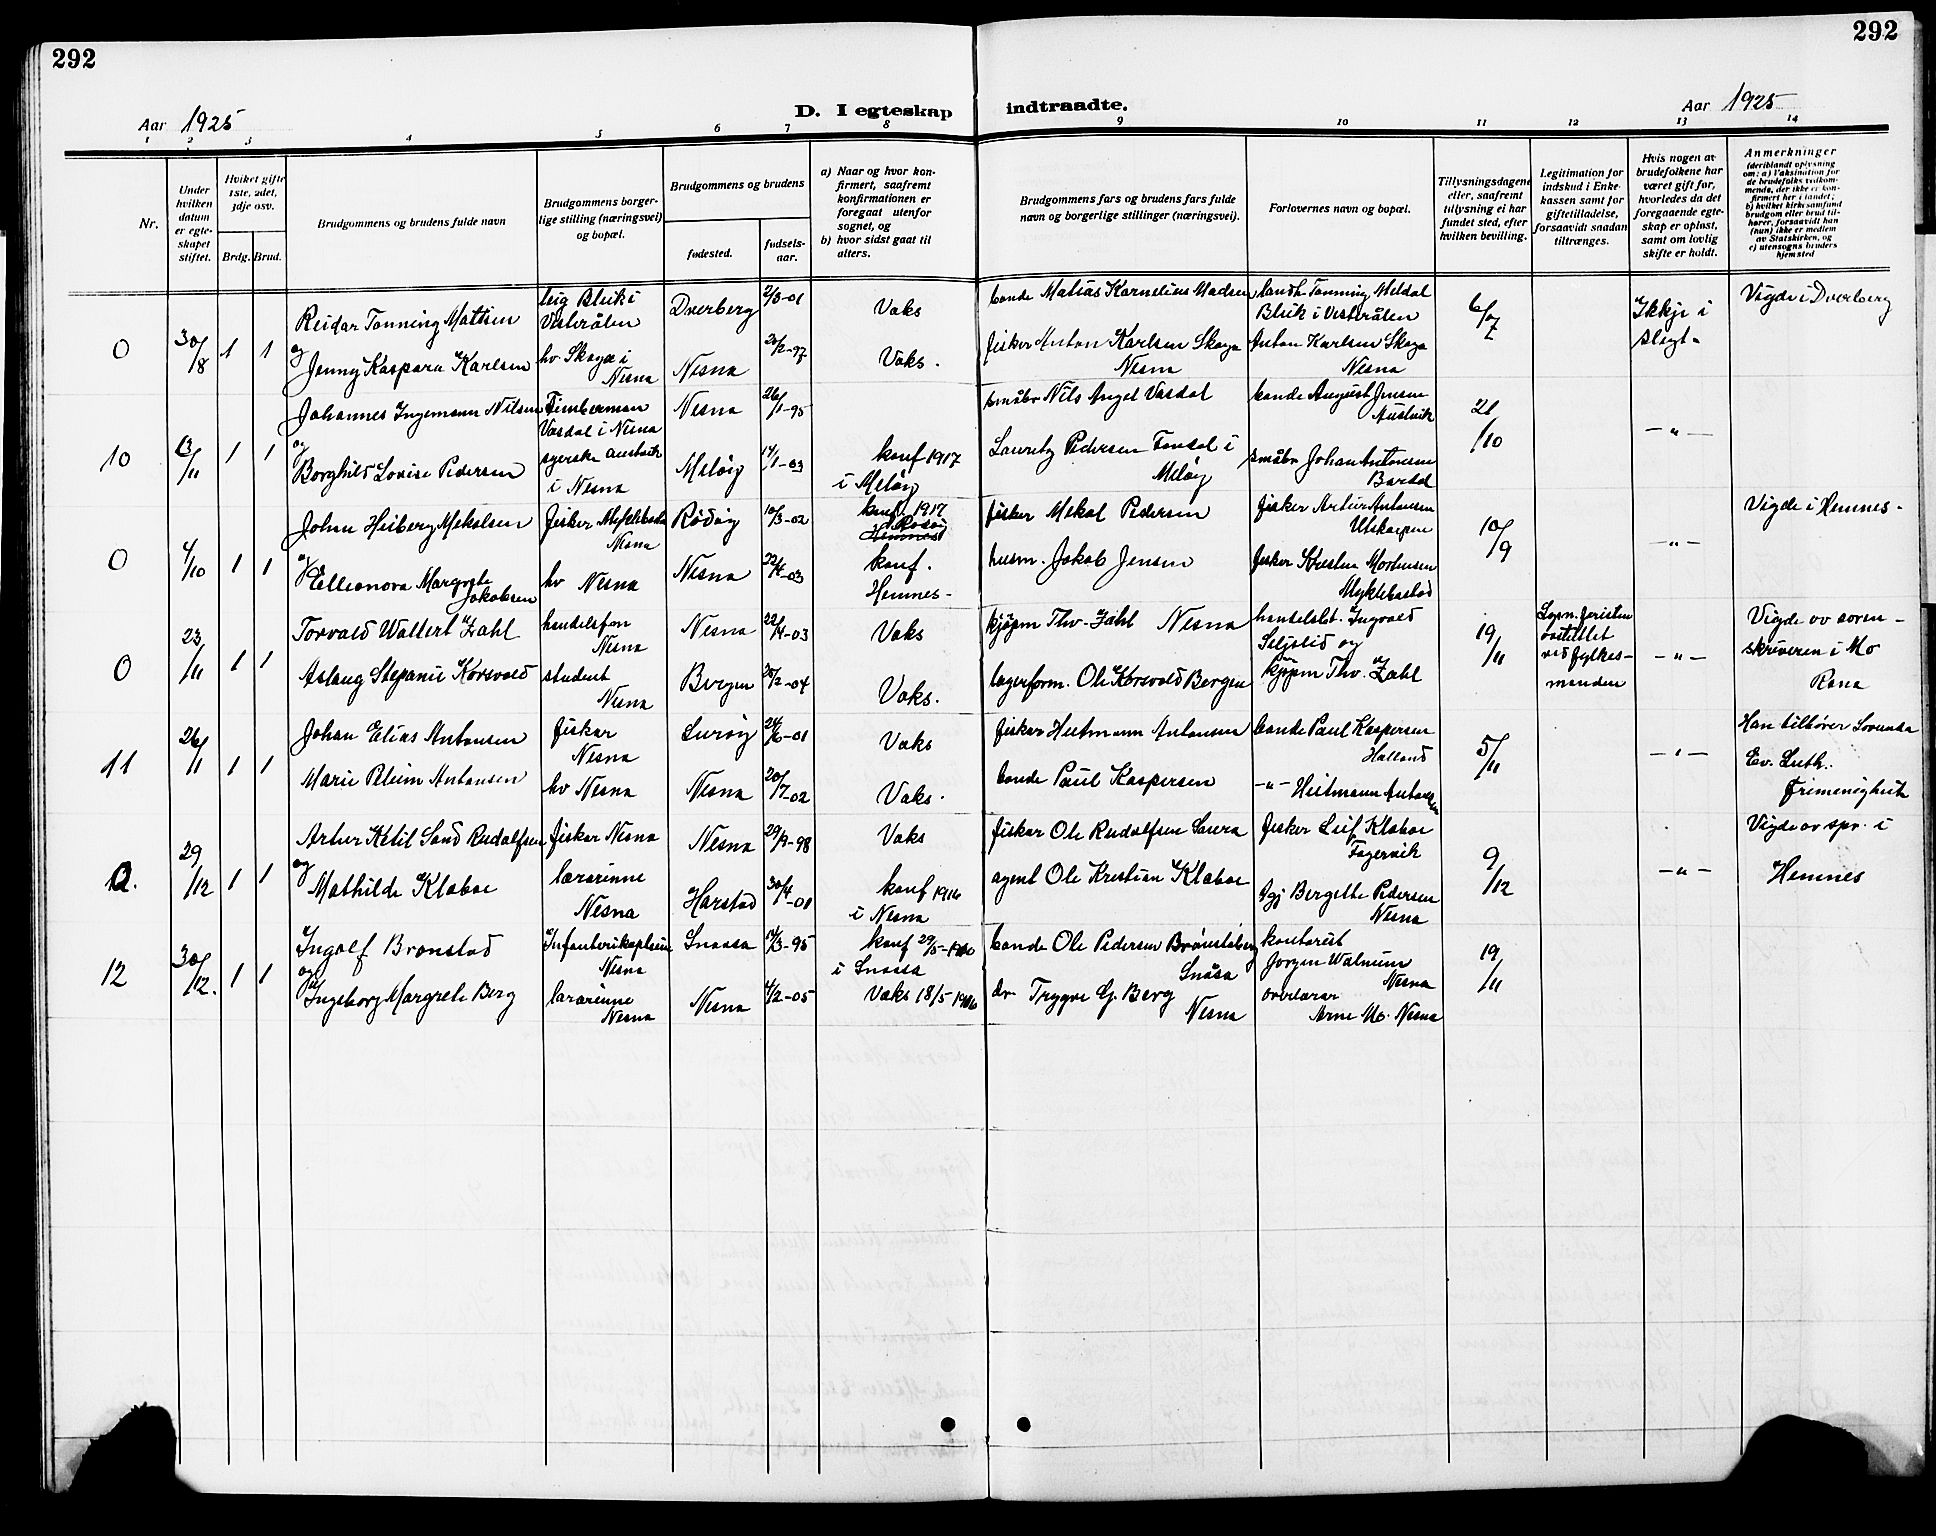 292
292
Aar 1925
D. I egteskap indtraadte.
Aar 1925
1 2 3 4 5 6 7 8 9 10 11 12 13 14
Nr.
Under hvilken datum er egteskapet stiftet.
Hvilket gifte 1ste, 2det, 3dje osv.
Brdg. Brud.
Brudgommens og brudens fulde navn
Brudgommens borgerlige stilling (næringsvei) og bopæl.
Brudgommens og brudens
fødested.
fødselsaar.
a) Naar og hvor konfirmert, saafremt konfirmationen er foregaat utenfor sognet, og
b) hvor sidst gaat til alters.
Brudgommens fars og brudens fars fulde navn og borgerlige stillinger (næringsvei).
Forlovernes navn og bopæl.
Tillysningsdagene eller, saafremt tillysning ei har fundet sted, efter hvilken bevilling.
Legitimation for indskud i Enkekassen samt for giftetilladelse, forsaavidt saadan tiltrænges.
Hvis nogen av brudefolkene har været gift før, hvorledes da det foregaaende egteskap er opløst, samt om lovlig skifte er holdt.
Anmerkninger
(deriblandt oplysning om: a) Vaksination for de brudefolks vedkommende, der ikke er konfirmert her i landet,
b) hvilket kirkesamfund brudgom eller brud tilhører, forsaavidt han (hun) ikke er medlem av Statskirken, og
c) utensogns bruders hjemsted
0 30/8 1 1
Reidar Tønning Matisen
leig Bleik i Vesterålen
Dverberg
2/3-01
Vaks
bonde Matias Kornelius Madsen
landh. Tønning Meldal Bleik i Vesterålen
6/7
Ikkje i slegt.
Vigde i Dverberg
og Jenny Kaspara Karlsen
hv Skogø i Nesna
Nesna
20/2-97
Vaks.
fisker Anton Karlsen Skoga Nesna
Anton Karlsen Skoga Nesna
10 13/11 1 1
Johannes Ingemann Nilsen
Timberman Vasdal i Nesna
Nesna
26/1-95
småbr Nils Angel Vasdal
bonde August Jensen Austvik
21/10
-"-
og Borghild Lovise Pedersen
syerske Austvik i Nesna
Meløy
14/1-03
konf 1917 i Meløy
Lauritz Pedersen Tondal i Meløy
småbr Johan Antonsen Bardal
0 4/10 1 1
Johan Heiberg Mekalsen
fisker Myklebostad Nesna
Rødøy
10/3-02
konf 1917 Rødøy Hemnes
fisker Mekal Pedersen
fisker Artur Antonsen Utskarpen
10/9
-"-
Vigde i Hemnes.
og Elleonora Margrete Jakobsen
hv Nesna
Nesna
22/4-03
konf. Hemnes.
husm. Jakob Jensen
fisker Kristen Mortensen Myklebostad
0 23/11 1 1
Torvald Waltert Zahl
handelsfm Nesna
Nesna
22/4-03
Vaks
kjøpm Thv. Zahl Nesna
handelsbt. Ingvald Seljelid og
19/11
ved fylkesmanden
-"-
Vigde av sorenskriveren i Mo Rana
Aslaug Stepanie Korsvold
student Nesna
Bergen
25/2-04
Vaks.
lagerform. Ole Korsvold Bergen
kjøpm Thv. Zahl
11 26/11 1 1
Johan Elias Antonsen
fisker Nesna
Lurøy
24/6-01
Vaks
fisker Heitmann Antonsen
bonde Paul Kaspersen Halland
5/11
-"-
Han tilhører Lovunda Ev. Luth. Frimenighet
Marie Bleim Antonsen
hv Nesna
Nesna
20/7-02
Vaks.
bonde Paul Kaspersen
-"- Heitmann Antonsen
0. 29/12 1 1
Artur Ketil Sand Rudolfsen
fisker Nesna
Nesna
29/9-98
Vaks
fisker Ole Rudolfsen Saura
fisker Leif Klæboe Fagervik
9/12
-"-
Vigde av spr. i Hemnes
og Mathilde Klæboe
lærarinne Nesna
Harstad
30/4-01
konf 1916 i Nesna
agent Ole Kristian Klæboe
Bergette Pedersen Nesna
12 30/12. 1 1
Ingolf Brønstad
Infanterikaptein Nesna
Snaasa
14/3-95
konf 29/5-1910 i Snaasa
bonde Ole Pedersen Brønstadberg Snåsa
kontorist Jørgen Walnum Nesna
19/11
og Ingeborg Margrete Berg
lærarinne Nesna
Nesna
4/2-05
Vaks 18/5-1906
dr Trygve G. Berg Nesna
overlærar Arne Mo. Nesna